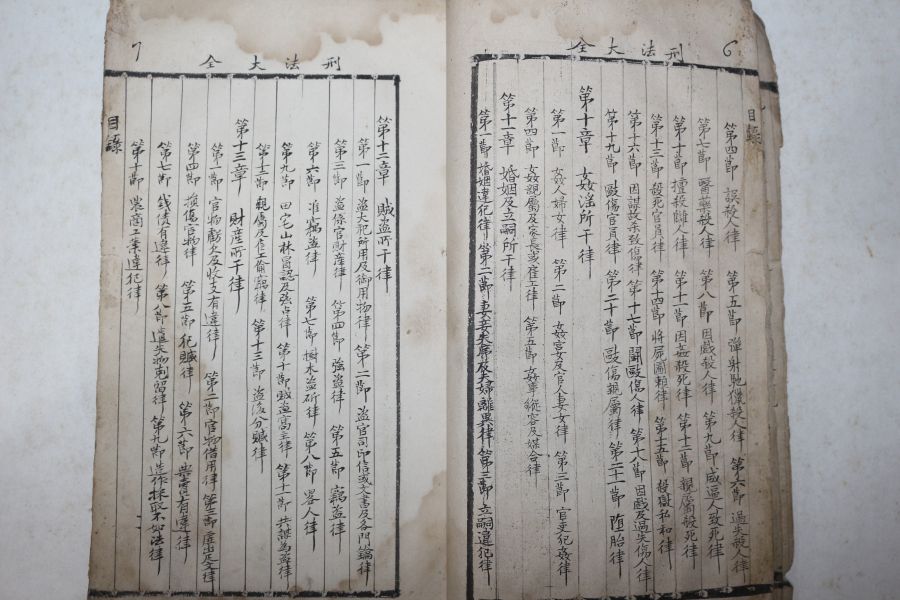 6
刑法大全
目錄
第四節 誤殺人律 第五節 彈射馳獵殺人律 第六節 過失殺人律
第七節 醫藥殺人律 第八節 因戱殺人律 第九節 威逼人致死律
第十節 擅殺讎人律 第十一節 因姦殺死律 第十二節 親屬殺死律
第十三節 殺死官員律 第十四節 將屍圖賴律 第十五節 殺獄私和律
第十六節 因謀故杀致傷律 第十七節 鬪毆傷人律 第十八節 因戱及過失傷人律
第十九節 毆傷官員律 第二十節 毆傷親屬律 第二十一節 墮胎律
第十章 姦淫所干律
第一節 姦人婦女律 第二節 姦宮女及官人妻女律 第三節 官吏犯姦律
第四節 姦親屬及家長或雇工律 第五節 姦事縱容及媒合律
第十一章 婚姻及立嗣所干律
第一節 婚姻違犯律 第二節 妻妾失序及夫婦離異律 第三節 立嗣違犯律
7
刑法大全
第十二章 賊盜所干律
第一節 盜大祀所用及御用物律 第二節 盜官司印信或文書及各門鑰律
第三節 盜係官財産律 第四節 強盜律 第五節 竊盜律
第六節 准竊盜律 第七節 樹木盜斫律 第八節 畧人律
第九節 田宅山林冒認及强占律 第十節 賊盜窩主律 第十一節 共謀為盜律
第十二節 親屬及雇工偷竊律 第十三節 盜後分贓律
第十三章 財産所干律
第一節 官物虧欠及收支有違律 第二節 官物借用律 第三節 虛出反文律
第四節 損傷官物律 第五節 犯贓律 第六節 典賣有違律
第七節 錢債有違律 第八節 遺失物剋留律 第九節 造作採取不如法律
第十節 農商工業違犯律
目錄